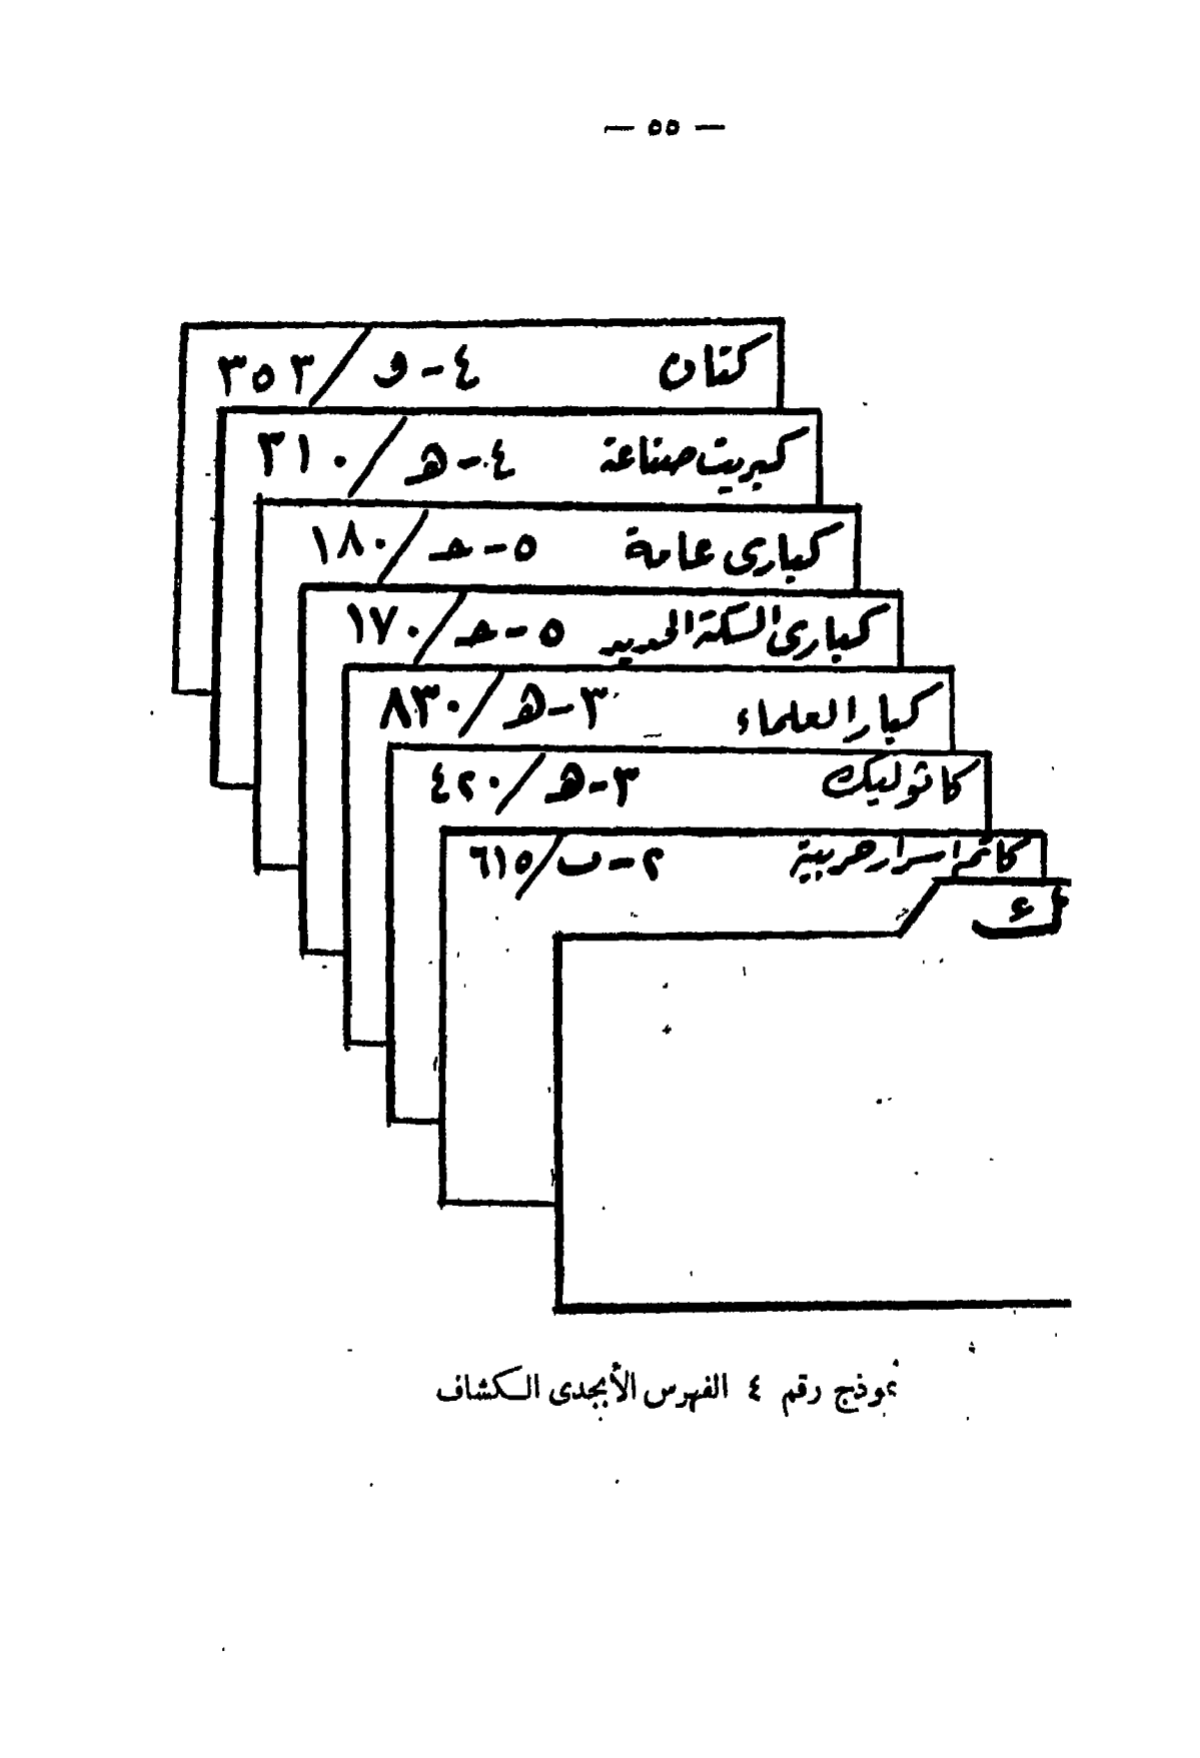 — ٥٥ —
كتان ٤-و/٣٥٣
كبريت صناعة ٤-هـ/٣١٠
كبارى عامة ٥-حـ/١٨٠
كبارى السكة الحديد ٥-حـ/١٧٠
كبار العلماء ٣-هـ/٨٣٠
كاثوليك ٣-هـ/٤٢٠
كاتم اسرار حربية ٢-ب/٦١٥
ك
نموذج رقم ٤ الفهرس الأبجدى الكشاف